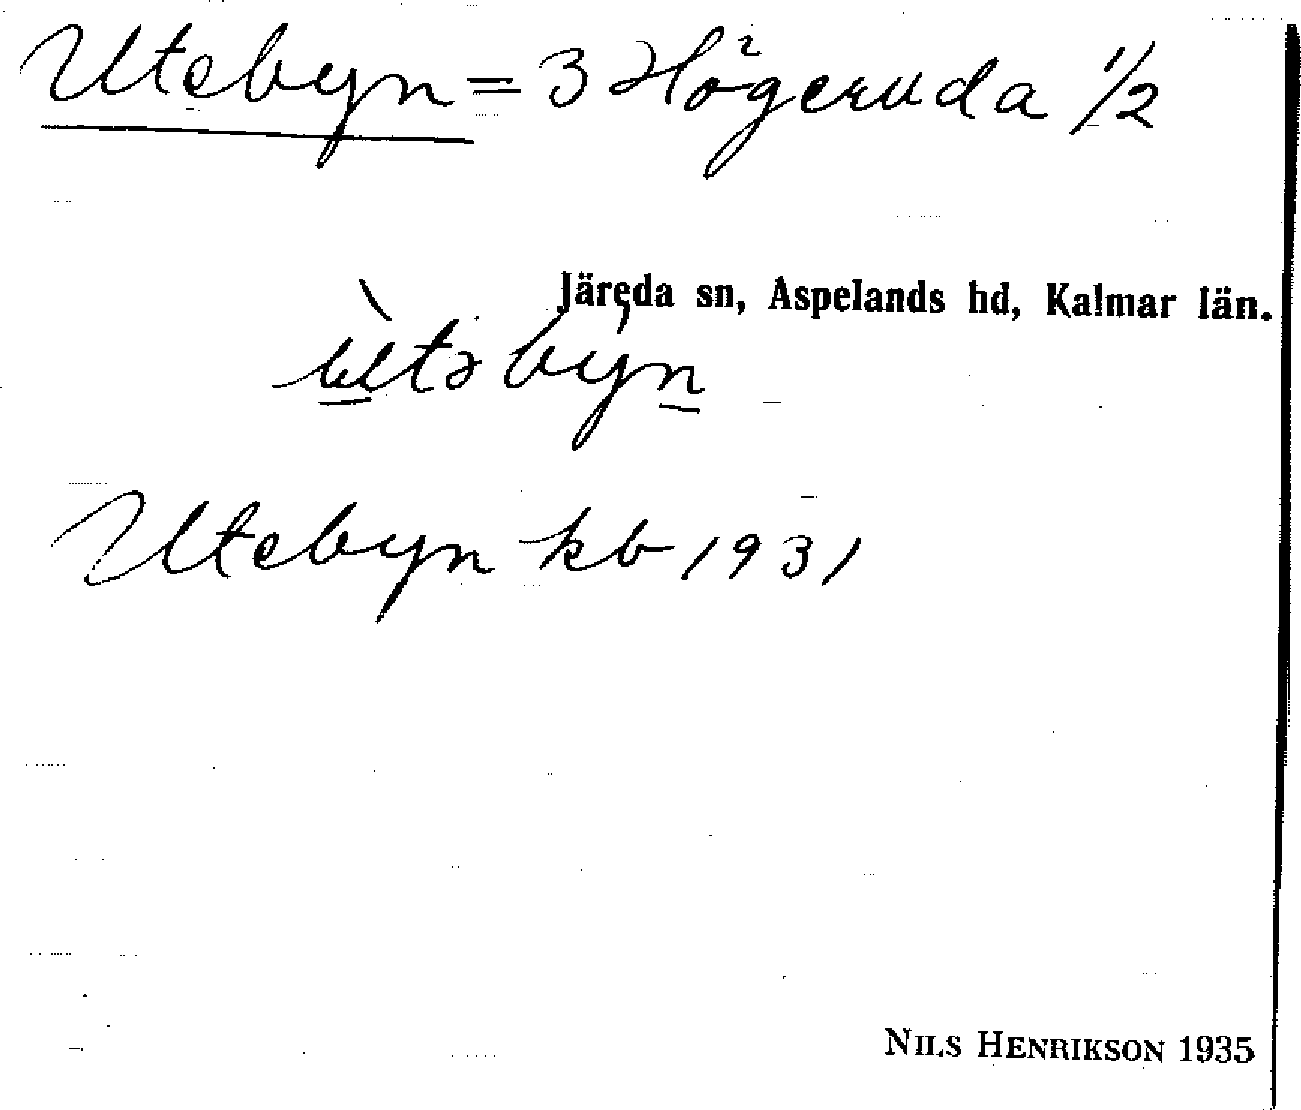 Utebyn = 3 Högeruda 1/2
Järeda sn, Aspelands hd, Kalmar län.
ùtəbyn
Utebyn kb 1931
NILS HENRIKSON 1935